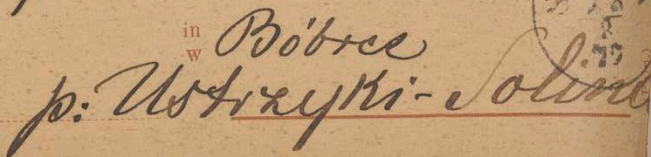 in
w Bóbrce
p: Ustrzyki-Solina